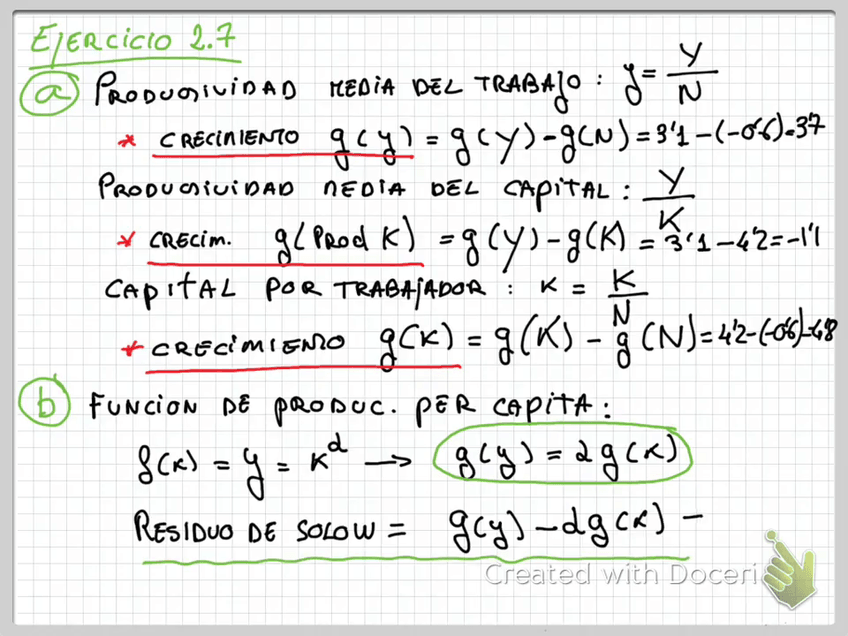 EJERCICIO 2.7
a PRODUCTIVIDAD MEDIA DEL TRABAJO : y = Y/N
* CRECIMIENTO g(y) = g(Y) - g(N) = 3'1 - (-0'6) = 3'7
PRODUCTIVIDAD MEDIA DEL CAPITAL : Y/K
* CRECIM. g(Prod K) = g(Y) - g(K) = 3'1 - 4'2 = -1'1
CAPITAL POR TRABAJADOR : k = K/N
* CRECIMIENTO g(k) = g(K) - g(N) = 4'2 - (-0'6) = 4'8
b FUNCION DE PRODUC. PER CAPITA :
f(k) = y = k^α → g(y) = α g(k)
RESIDUO DE SOLOW = g(y) - α g(k) -
Created with Doceri